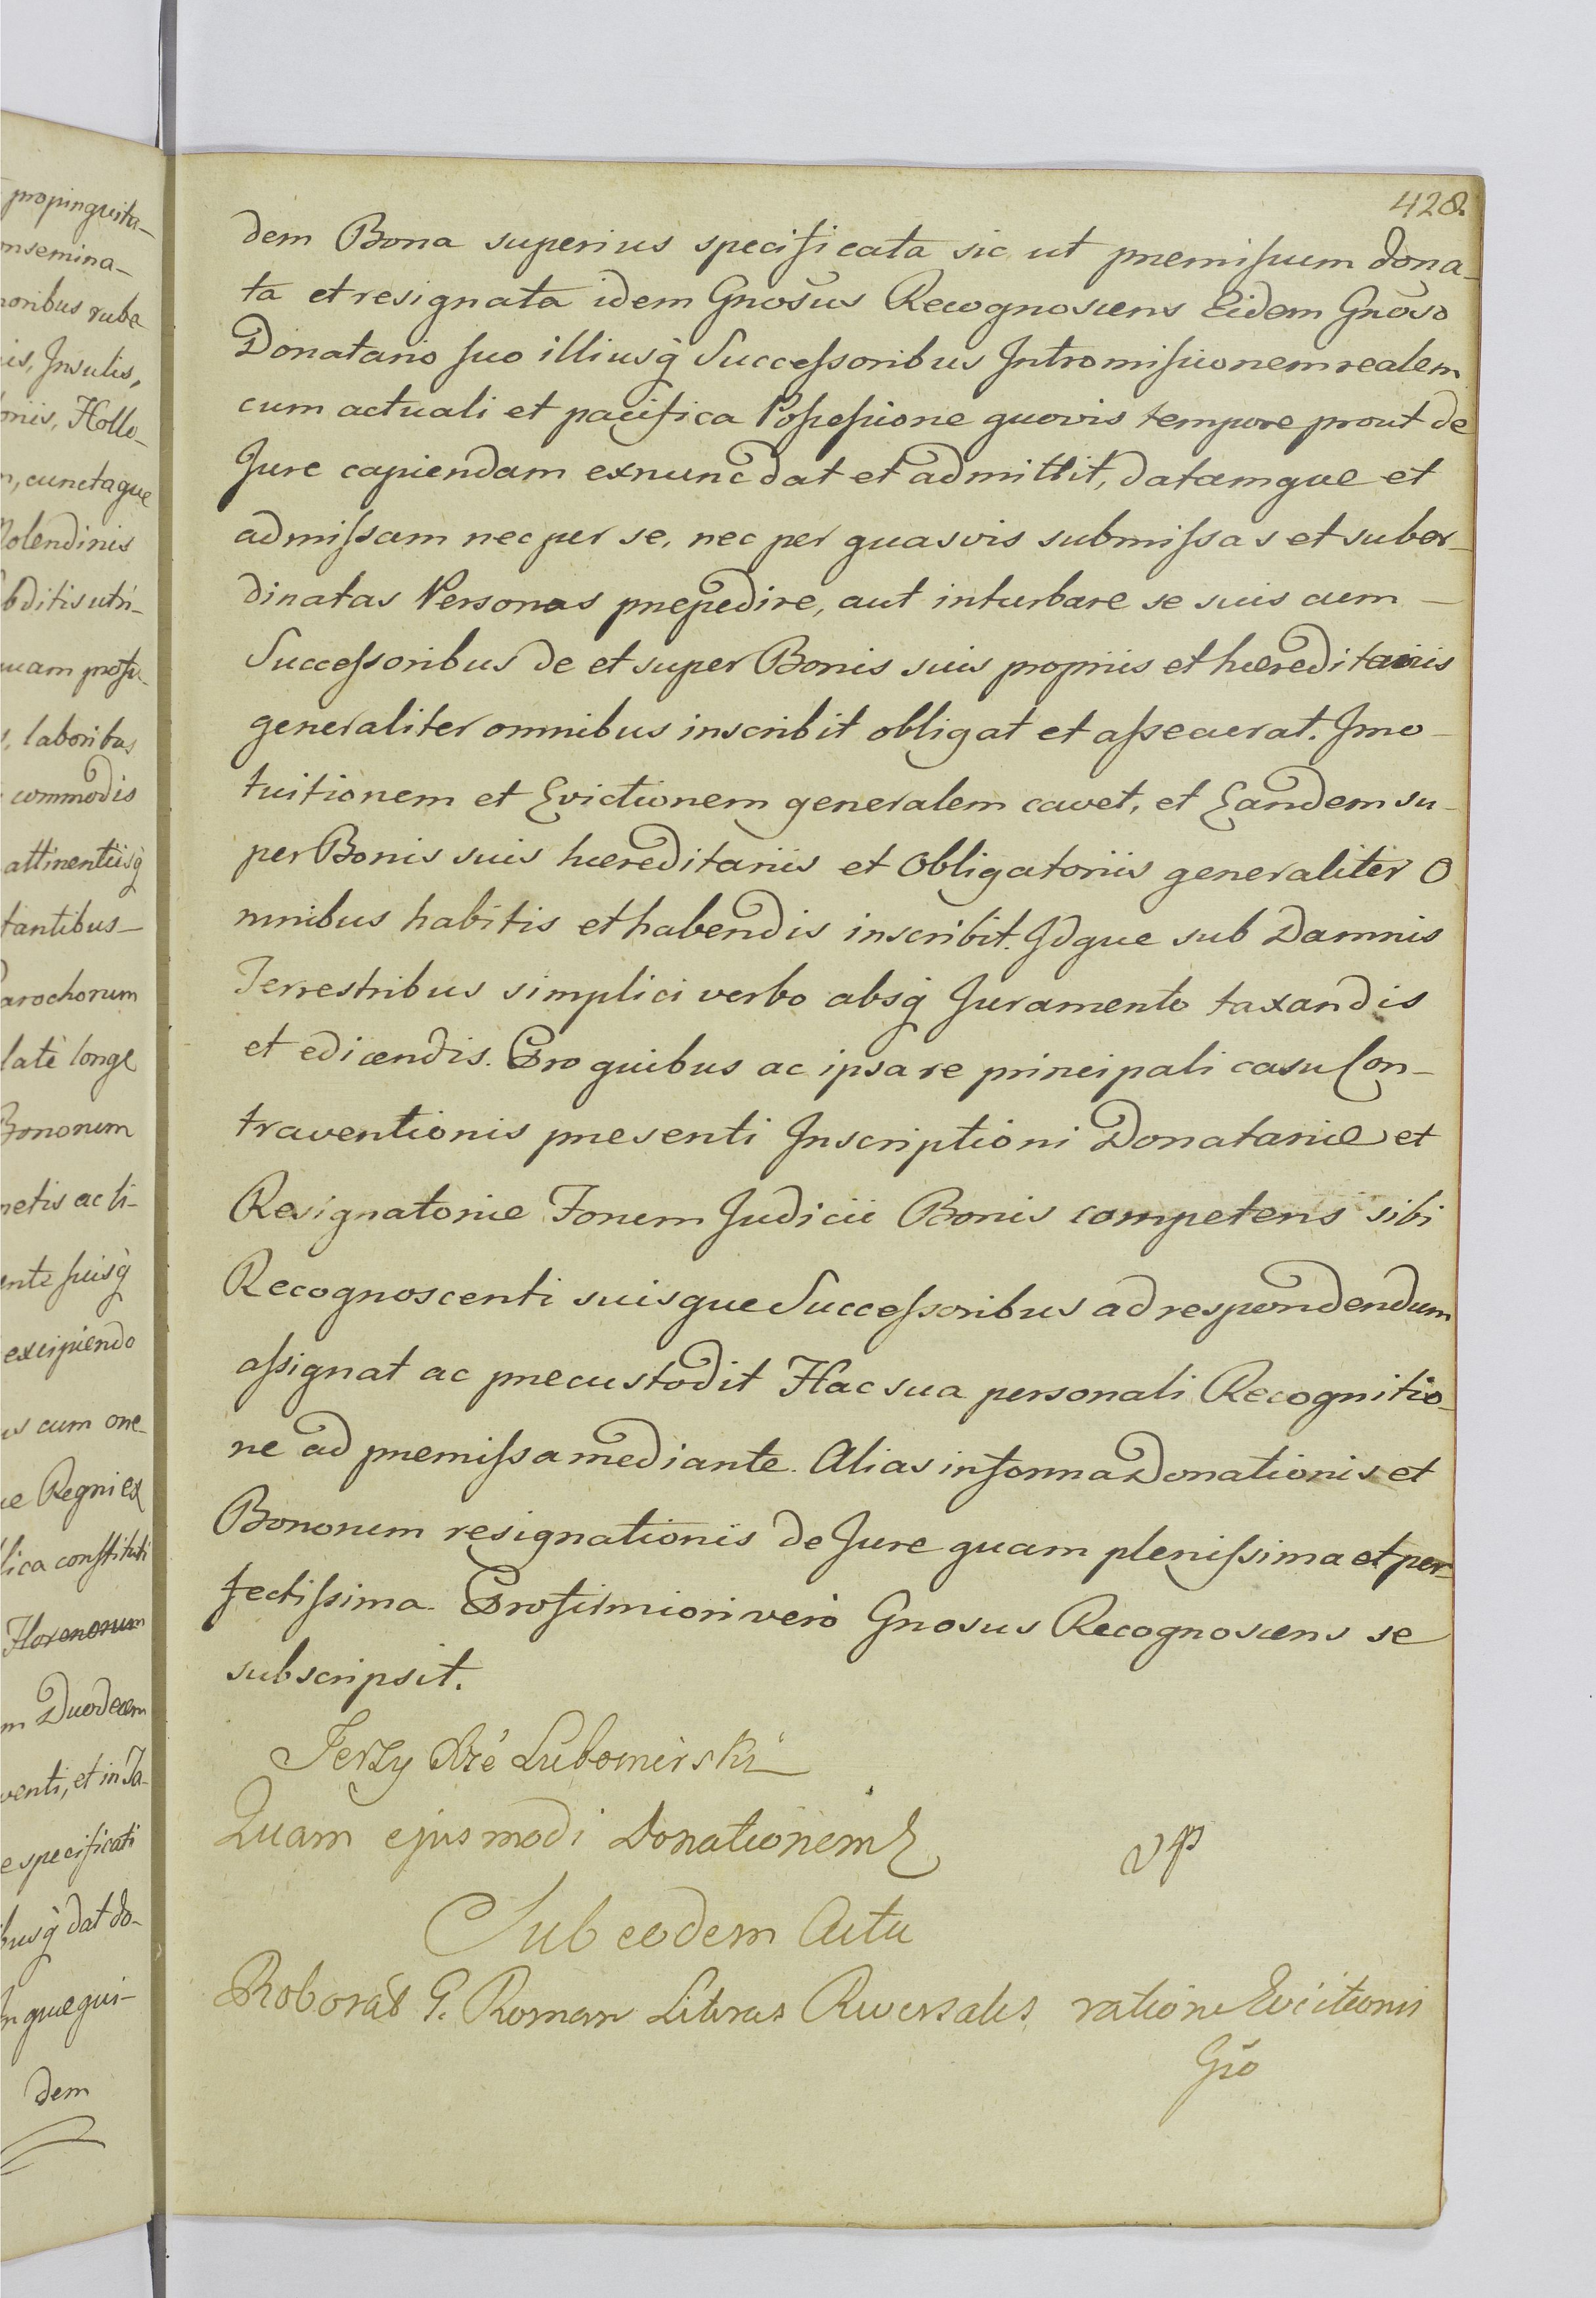 428.
dem Bona superius specificata sic ut premissum dona-
ta et resignata idem Gnosus Recognoscens Eidem Gnoso
Donatario suo illiusq Successoribus Intromissionem realem
cum actuali et pacifica Possessione quovis tempore prout de
Jure capiendam exnunc dat et admittit, datamque et
admissam nec per se, nec per quasvis submissas et subor-
dinatas Personas prepedire, aut inturbare se suis cum -
Successoribus de et super Bonis suis propriis et hæreditariis
generaliter omnibus inscribit obligat et assecurat. Imo -
tuitionem et Evictionem generalem cavet, et Eandem su-
per Bonis suis hæreditariis et Obligatoriis generaliter O
mnibus habitis et habendis inscribit. Idque sub Damnis
Terrestribus simplici verbo absq Juramento taxandis
et edicendis. Pro quibus ac ipsa re principali casu Con-
traventionis presenti Inscriptioni Donatariæ et
Resignatoriæ Forum Judicii Bonis competens sibi
Recognoscenti suisque Successoribus ad respondendum
assignat ac precustodit Hac sua personali Recognitio-
ne ad premissa mediante. Alias in forma Donationis et
Bonorum resignationis de Jure quam plenissima et per-
fectissima. Pro firmiori vero Gnosus Recognoscens se
subscripsit.
Jerzy Lubomirski
Quam ejusmodi Donationem
Sub eodem Actu
Roborat G. Roman Literas Reversales ratione Evictionis
Gso
propinquita-
nsemina-
noribus rube
is, Insulis,
oniis, Hollo-
m, cunctaque
Molendinis
bditis utri-
uam
s, laboribus
commodis
attinentiisq
tantibus -
Parochorum
late longe
Bonorum
metis ac li-
ente suisq
excipiendo
us cum one-
ue Regni ex
lica constituti
Florenorum
m Duodecem
venti, et in Ta-
e specificati
busq dat do-
n quæ qui-
dem